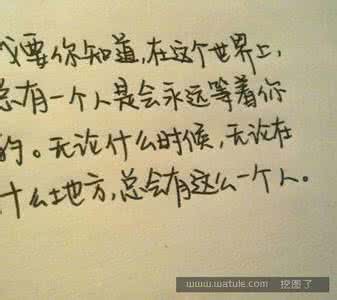 我要你知道,在这个世界上,
总有一个人是会永远等着你
的。无论什么时候,无论在
什么地方,总会有这么一个人。
www.watule.com 挖图了